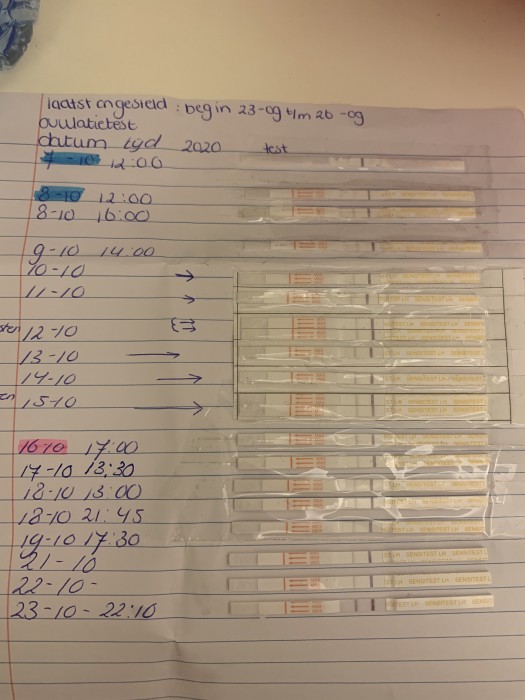 laatst ongesteld : begin 23-09 t/m 26-09
Ovulatietest
datum tijd 2020 test
7-10 12:00
8-10 12:00
8-10 16:00
9-10 14:00
10-10 →
11-10 →
12-10
13-10 →
14-10 →
15-10 →
16-10 17:00
17-10 13:30
18-10 13:00
18-10 21:45
19-10 17:30
21-10
22-10 -
23-10 - 22:10
SENSITEST LH SENSITEST LH
SENSITEST LH SENSI